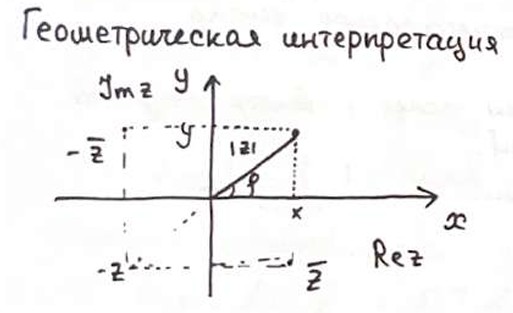 Геометрическая интерпретация
Im z y
-z̄ y |z|
φ
x
x
-z z̄ Re z